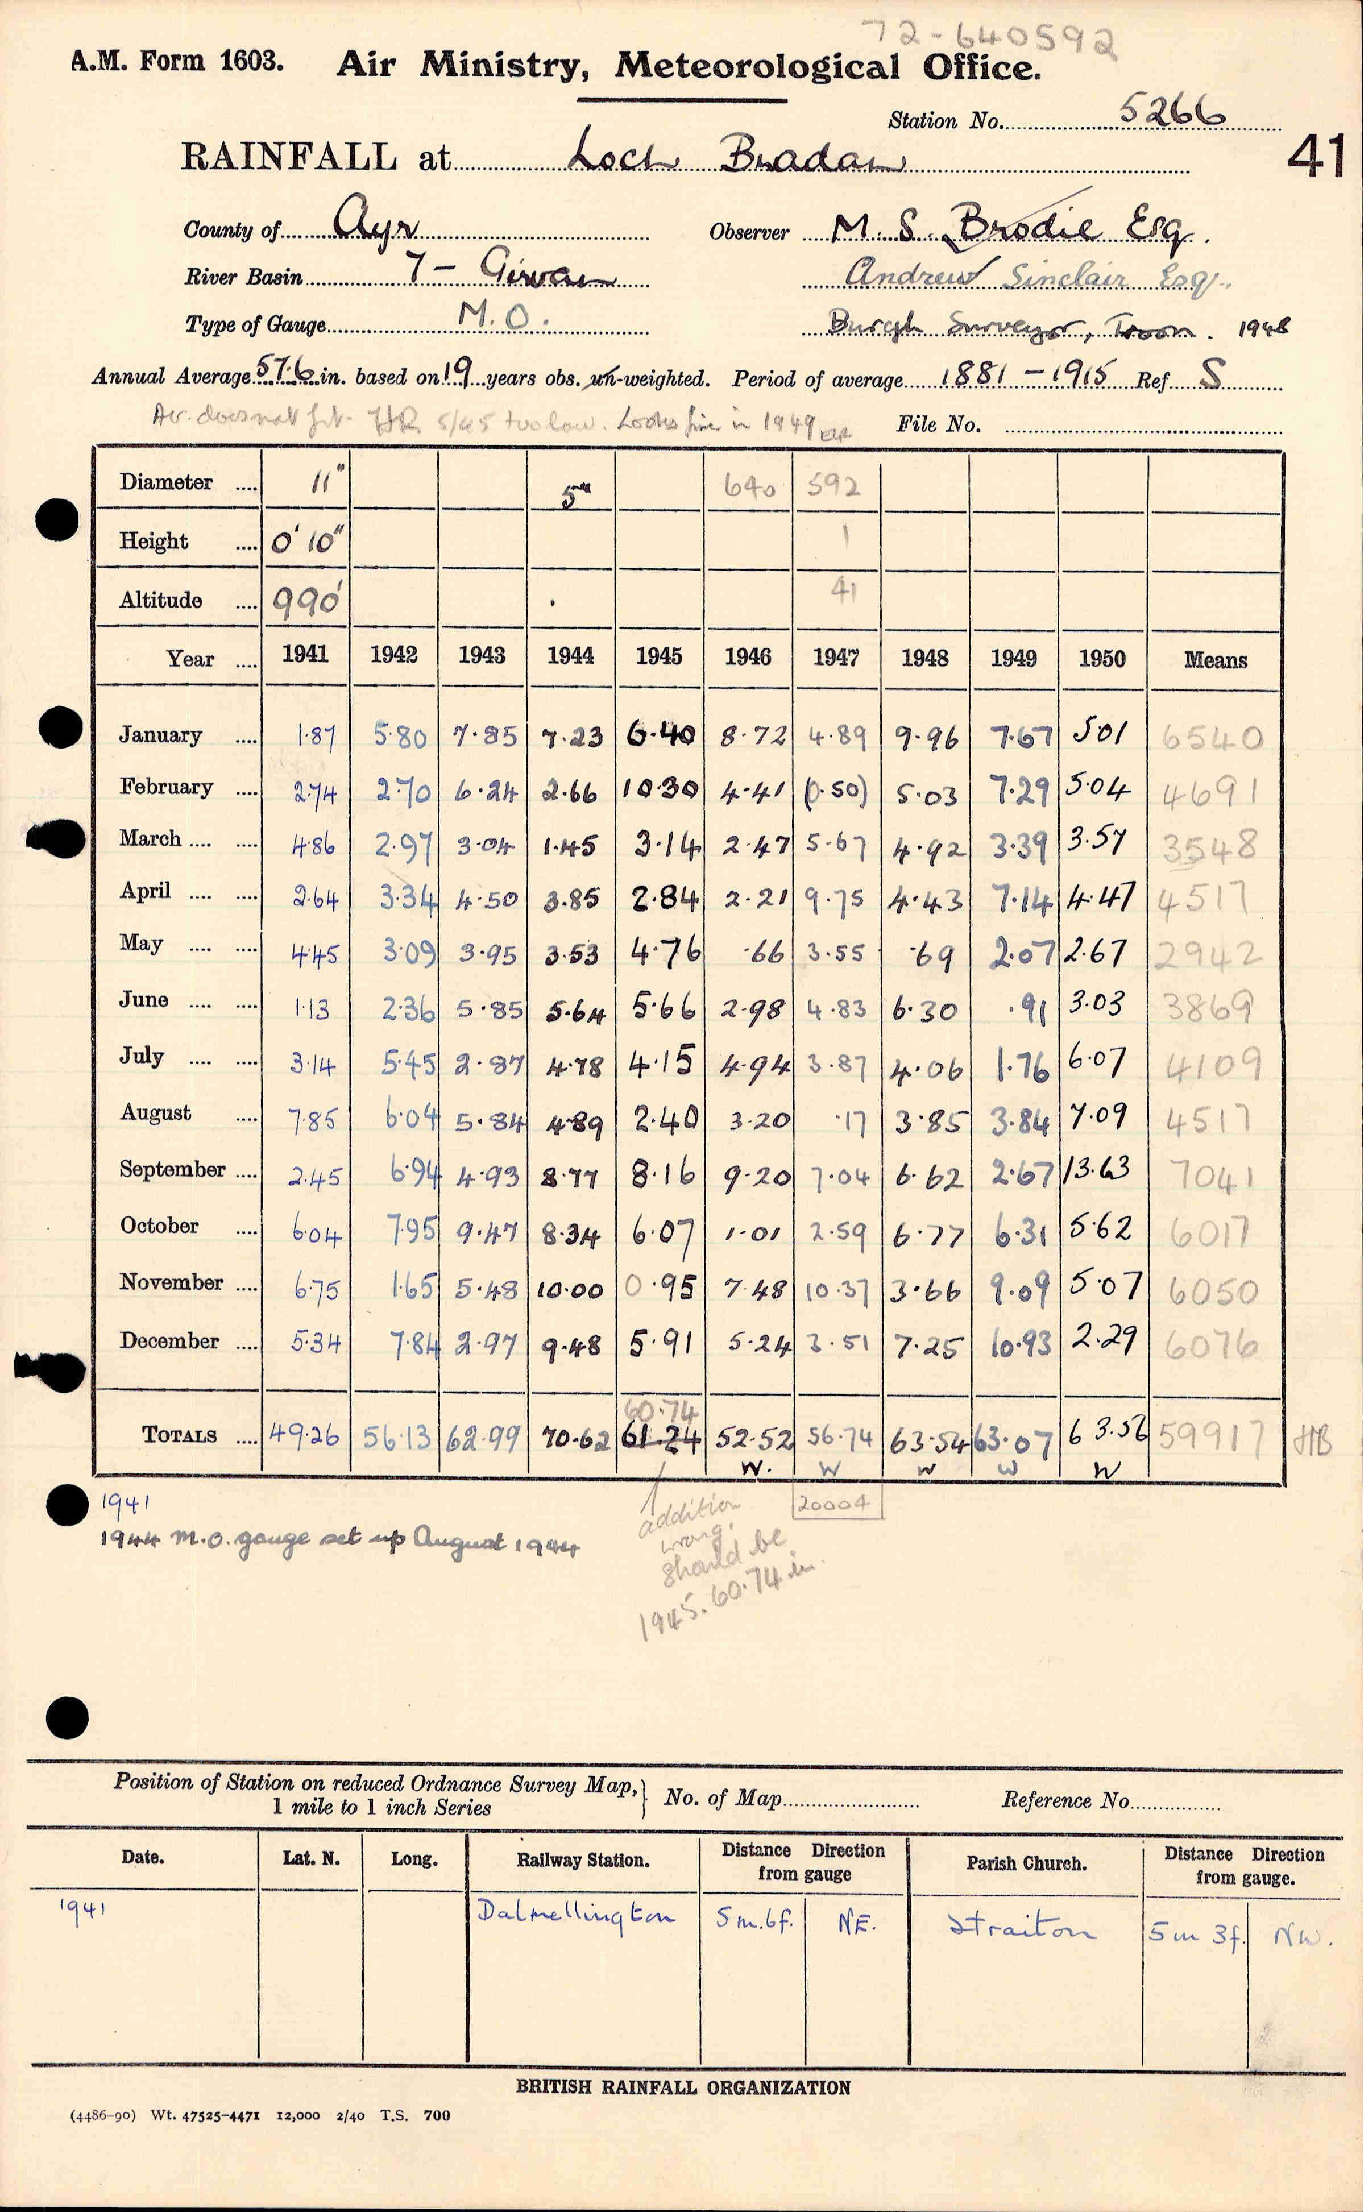 72-640592
A.M. Form 1603. Air Ministry, Meteorological Office.
Station No. 5266
41
RAINFALL at Loch Bradan
County of Ayr Observer M. S. Brodie Esq.
River Basin 7 - Girvan Andrew Sinclair Esq.
Type of Gauge M.O. Burgh Surveyor, Troon. 1948
Annual Average 57.6 in. based on 19 years obs. un-weighted. Period of average 1881-1915 Ref S
Av. does not fit. 5/45 too low. Looks fine in 1949 File No.
Diameter .... 11" 5" 640 592
Height .... 0' 10" 1
Altitude .... 990' 41
Year .... 1941 1942 1943 1944 1945 1946 1947 1948 1949 1950 Means
January .... 1.87 5.80 7.85 7.23 6.40 8.72 4.89 9.96 7.67 5.01 6540
February .... 2.74 2.70 6.24 2.66 10.30 4.41 (0.50) 5.03 7.29 5.04 4691
March .... .... 4.86 2.97 3.04 1.45 3.14 2.47 5.67 4.92 3.39 3.57 3548
April .... .... 2.64 3.34 4.50 3.85 2.84 2.21 9.75 4.43 7.14 4.47 4517
May .... .... 4.45 3.09 3.95 3.53 4.76 .66 3.55 .69 2.07 2.67 2942
June .... .... 1.13 2.36 5.85 5.64 5.66 2.98 4.83 6.30 .91 3.03 3869
July .... .... 3.14 5.45 2.87 4.78 4.15 4.94 3.87 4.06 1.76 6.07 4109
August .... 7.85 6.04 5.84 4.89 2.40 3.20 .17 3.85 3.84 7.09 4517
September .... 2.45 6.94 4.93 8.77 8.16 9.20 7.04 6.62 2.67 13.63 7041
October .... 6.04 7.95 9.47 8.34 6.07 1.01 2.59 6.77 6.31 5.62 6017
November .... 6.75 1.65 5.48 10.00 0.95 7.48 10.37 3.66 9.09 5.07 6050
December .... 5.34 7.84 2.97 9.48 5.91 5.24 3.51 7.25 10.93 2.29 6076
60.74
TOTALS .... 49.26 56.13 62.99 70.62 61.24 52.52 56.74 63.54 63.07 63.56 59917 HB
W. W W W W
1941
20004
1944 M.O. gauge set up August 1944
addition
wrong.
should be
1945. 60.74 in.
Position of Station on reduced Ordnance Survey Map,
1 mile to 1 inch Series
No. of Map
Reference No.
Date. Lat. N. Long. Railway Station. Distance Direction from gauge Parish Church. Distance Direction from gauge.
1941 Dalmellington 5 m. 6f. NE. Straiton 5 m 3f. NW.
BRITISH RAINFALL ORGANIZATION
(4486-90) Wt. 47525-4471 12,000 2/40 T.S. 700